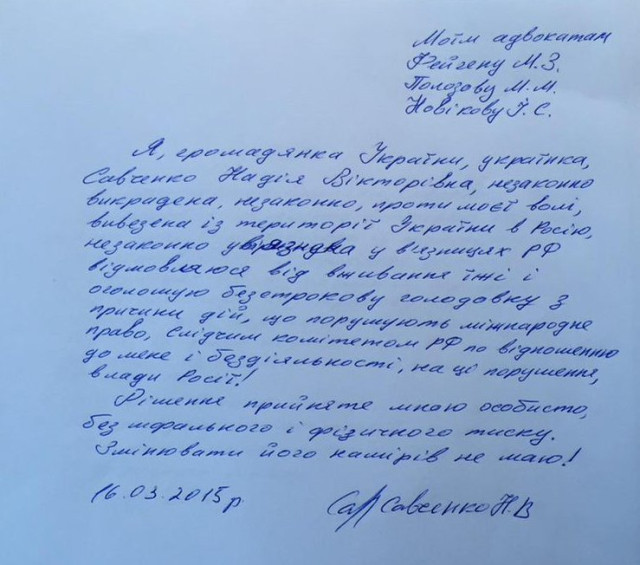 Моїм адвокатам
Фейгену М.З.
Полозову М.М.
Новікову І.С.
Я, громадянка України, українка,
Савченко Надія Вікторівна, незаконно
викрадена, незаконно, проти моєї волі,
вивезена із території України в Росію,
незаконно у в'язницях РФ
відмовляюся від вживання їжі і
оголошую безстрокову голодовку з
причини дій, що порушують міжнародне
право, Слідчим комітетом РФ по відношенню
до мене і бездіяльності, на ці порушення,
влади Росії!
Рішення прийняте мною особисто,
без морального і фізичного тиску.
Змінювати його намірів не маю!
16.03.2015р
Савченко Н.В